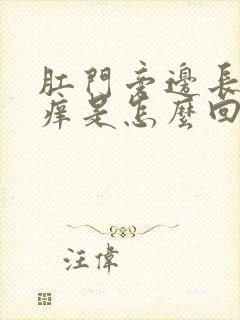 肛門旁邊長
癢是怎麼回
汪偉